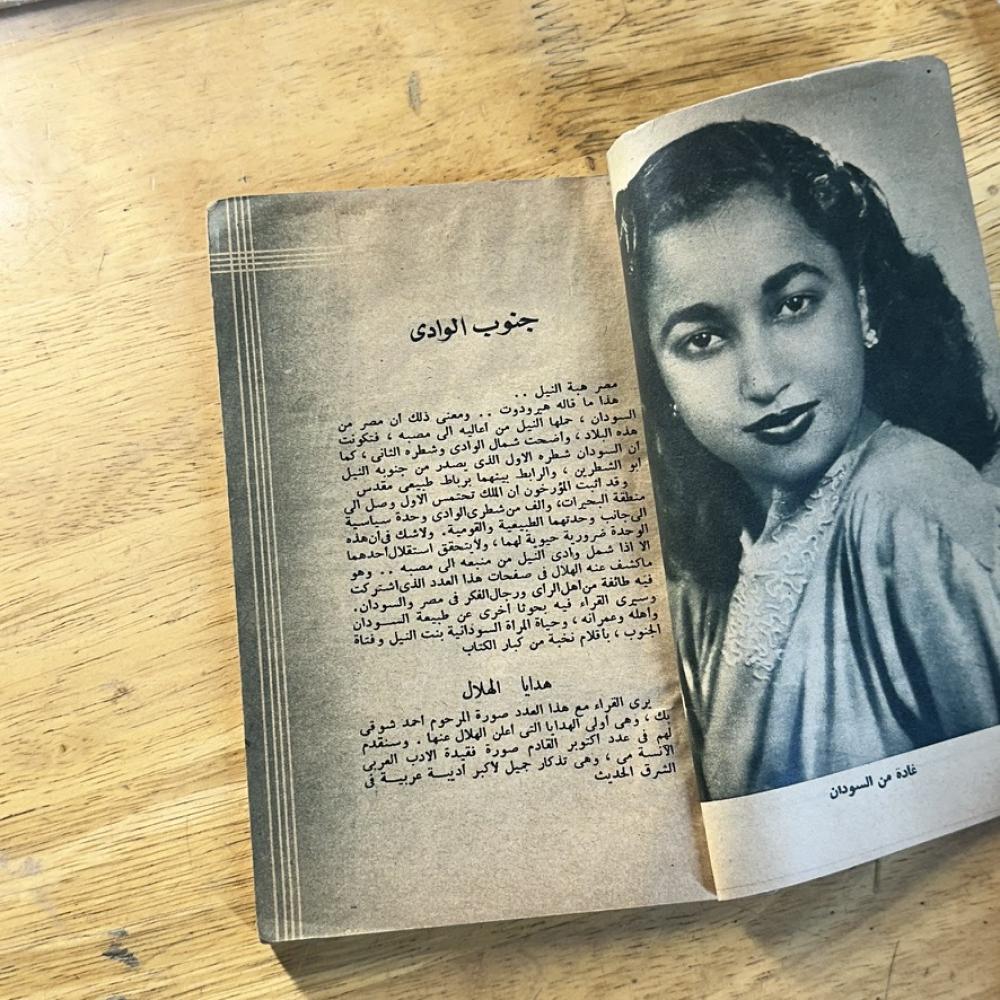 جنوب الوادى
مصر هبة النيل ..
هذا ما قاله هيرودوت .. ومعنى ذلك ان مصر من
السودان ، حملها النيل من أعاليه الى مصبه ، فتكونت
هذه البلاد ، وأضحت شمال الوادى وشطره الثانى ، كما
ان السودان شطره الاول الذى يصدر من جنوبه النيل
أبو الشطرين ، والرابط بينهما برباط طبيعى مقدس
وقد أثبت المؤرخون ان الملك تحتمس الاول وصل الى
منطقة البحيرات، وألف من شطرى الوادى وحدة سياسية
الى جانب وحدتهما الطبيعية والقومية. ولاشك فى ان هذه
الوحدة ضرورية حيوية لهما ، ولايتحقق استقلال احدهما
الا اذا شمل وادى النيل من منبعه الى مصبه .. وهو
ماكشف عنه الهلال فى صفحات هذا العدد الذى اشتركت
فيه طائفة من اهل الرأى ورجال الفكر فى مصر والسودان.
وسيرى القراء فيه بحوثا أخرى عن طبيعة السودان
وأهله وعمرانه ، وحياة المرأة السودانية بنت النيل وفتاة
الجنوب ، بأقلام نخبة من كبار الكتاب
هدايا الهلال
يرى القراء مع هذا العدد صورة المرحوم احمد شوقى
بك ، وهى أولى الهدايا التى أعلن الهلال عنها . وسنقدم
لهم فى عدد اكتوبر القادم صورة فقيدة الادب العربى
الآنسة مى ، وهى تذكار جميل لأكبر أديبة عربية فى
الشرق الحديث
غادة من السودان